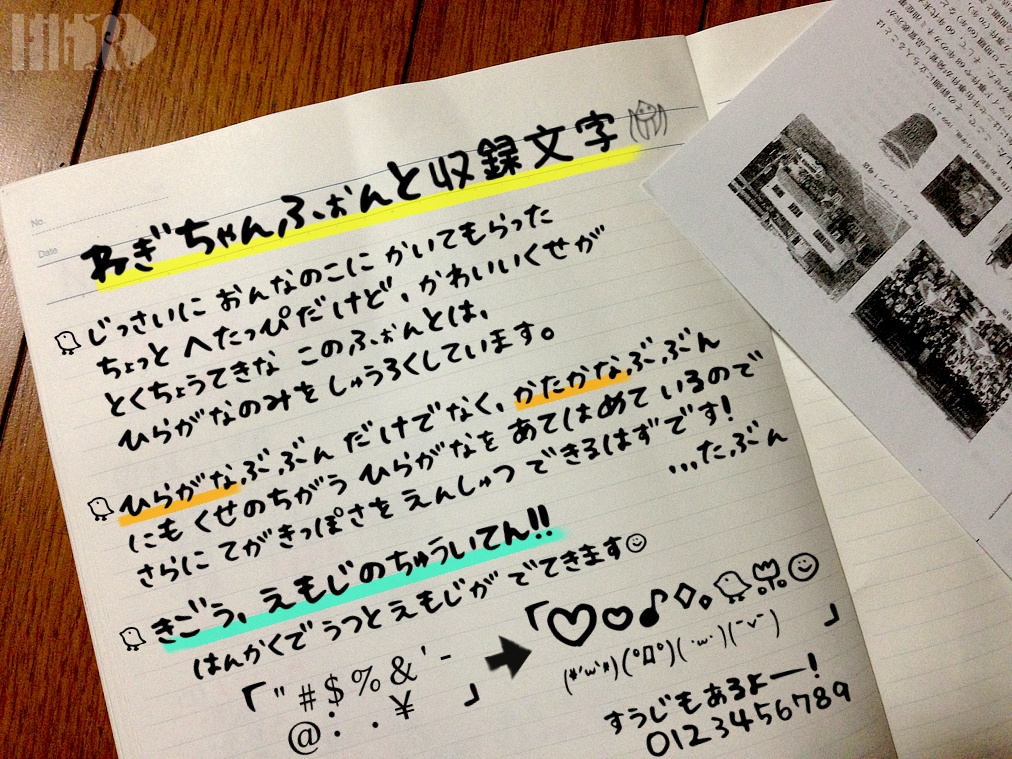 No.
Date
おぎちゃんふぉんと収録文字
じっさいに おんなのこに かいてもらった
ちょっと へたっぴだけど、かわいいくせが
とくちょうてきな このふぉんとは、
ひらがなのみを しゅうろくしています。
ひらがなぶぶん だけでなく、かたかなぶぶん
にも くせのちがう ひらがなを あてはめて いるので
さらに てがきっぽさを えんしゅつ できるはずです!
...たぶん
きごう、えもじのちゅういてん!!
はんかくで うつと えもじが でてきます☺
「" #$%&'-
@:・.¥」
「♡♡♪◇。☺
(*'ω'*)(°ロ°)(・ω・)(ˉvˉ)」
すうじもあるよー!
0123456789